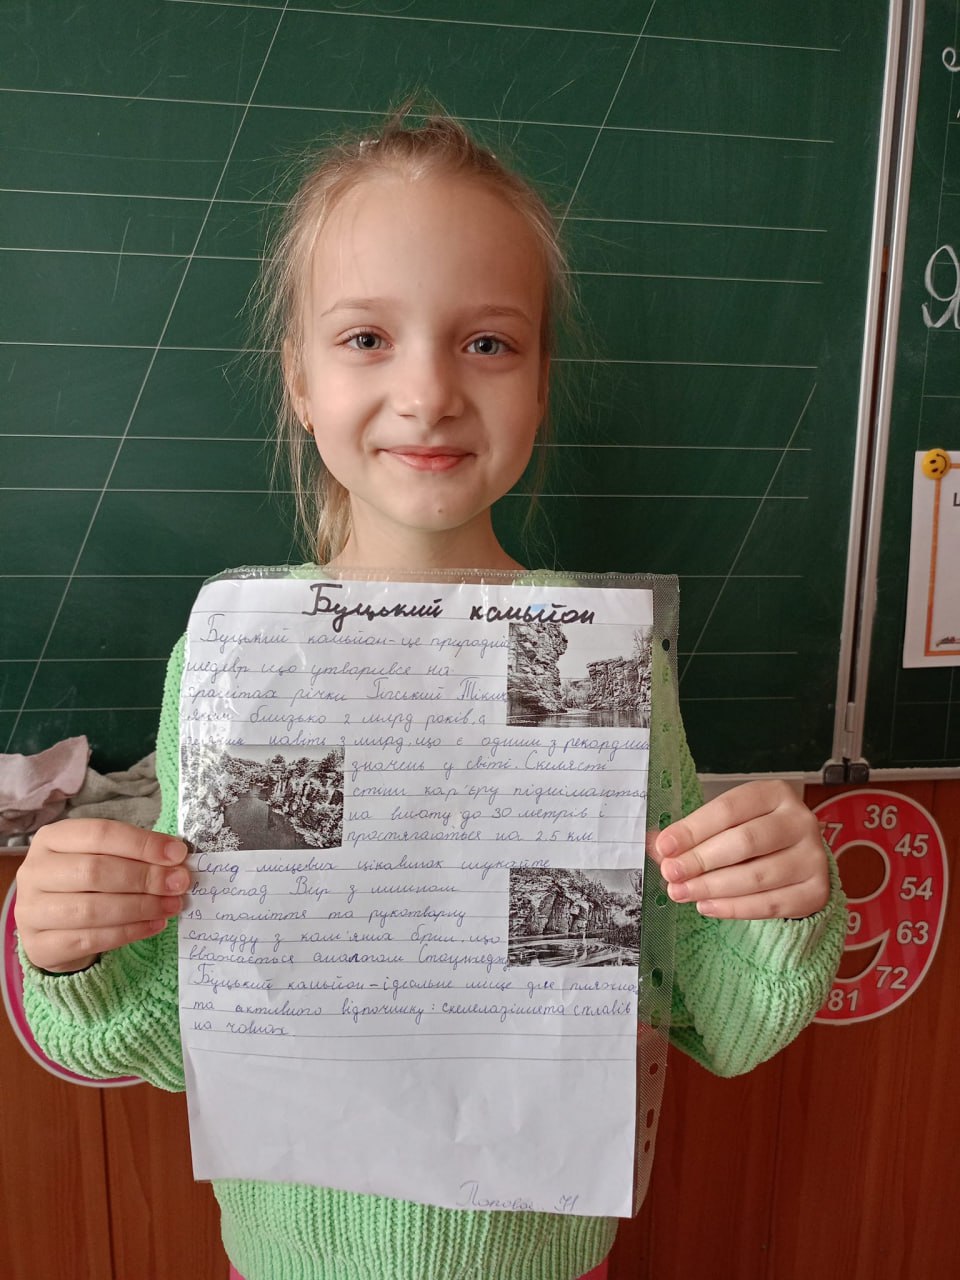 Буцький каньйон
Буцький каньйон - це природній
шедевр що утворився на
гранітах річки Гірський Тікич
яким близько 2 млрд років, а
навіть 3 млрд, що є одним з рекордних
значень у світі. Скелясті
стіни кар'єру піднімаються
на висоту до 30 метрів і
простягаються на 2.5 км
Серед місцевих цікавинок шукайте
водоспад Вир з млином
19 століття та рукотварну
споруду з кам'яних брил, що
вважається аналогом Стоунхенджу
Буцький каньйон - ідеальне місце для пляжного
та активного відпочинку: скелелазіння та сплавів
на човнах.
Попова Н
36
45
54
63
72
81
Я